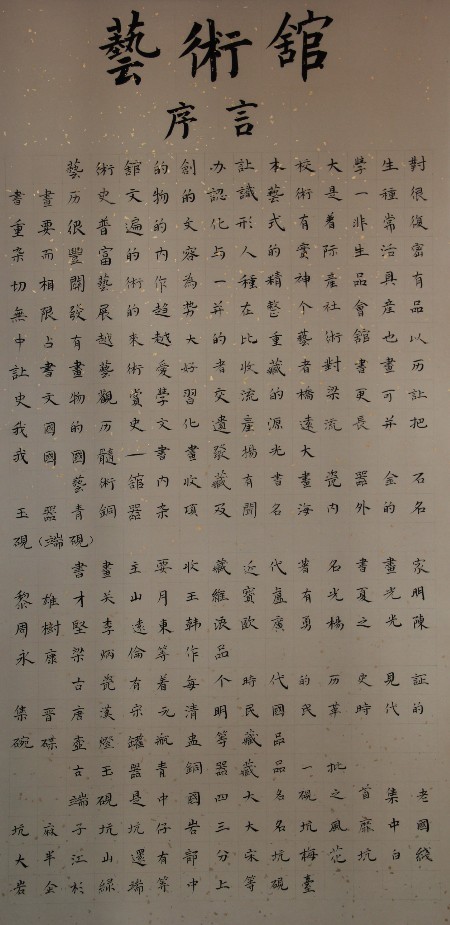 藝術舘
序言
藝術舘的創办让本校大學生對
書畫历史文物的認識藝術是一種很
重要很普遍的文化形式有着非常復
杂而豐富的内容与人的實际生活富
切相關藝術作為一種精神產品具有
無限發展的超势并在整个社會產品
中占有越來越大的比重藝術舘也以
让書畫藝術愛好者收藏者對書畫历
史文物觀賞學習交流的橋梁更可让
我國的历史文化遺產源遠流長并把
我國國髓一書畫發揚光大
藝術舘内收藏有書畫瓷器金石
玉器青銅器杂項及聞名海内外的名
硯(端硯)
書畫主要收藏近代著名書畫家
黎雄才关山月王維寳盧有光夏光明
周樹堅李遠東韩浪歐廣勇楊之光陳
永康梁炳倫等作品
古瓷有着每个時代的历史見証
集晋唐漢宋元清明民國民革時代的
碗碟壶燈罐瓶盅等藏品
古玉器青銅器藏品一批
端硯是中國四大名硯之首集老
坑麻子坑坑仔岩三大名坑之風中國
大半江山還有部分宋坑梅花坑白綫
岩金杉綠端等中上等硯臺